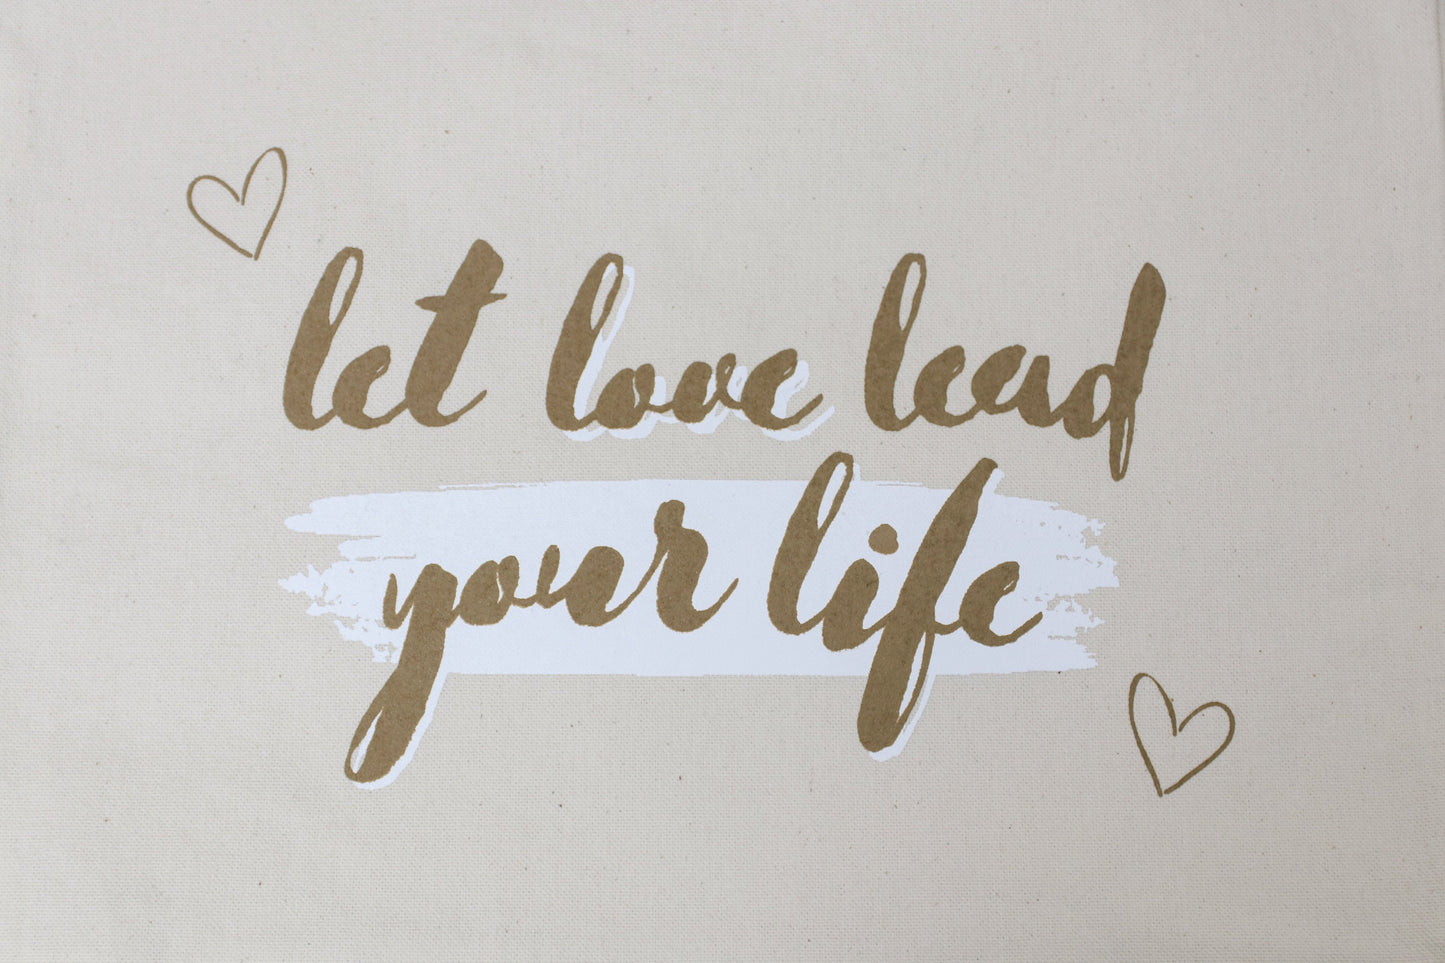 let love lead
your life